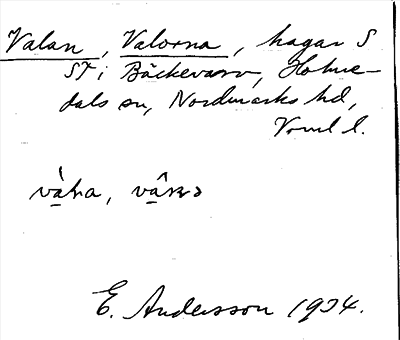 Valan, Valorna, hagar S
ST i Bäckevarv, Holme-
dals sn, Nordmarks hd,
Vrml l.
E. Andersson 1934.